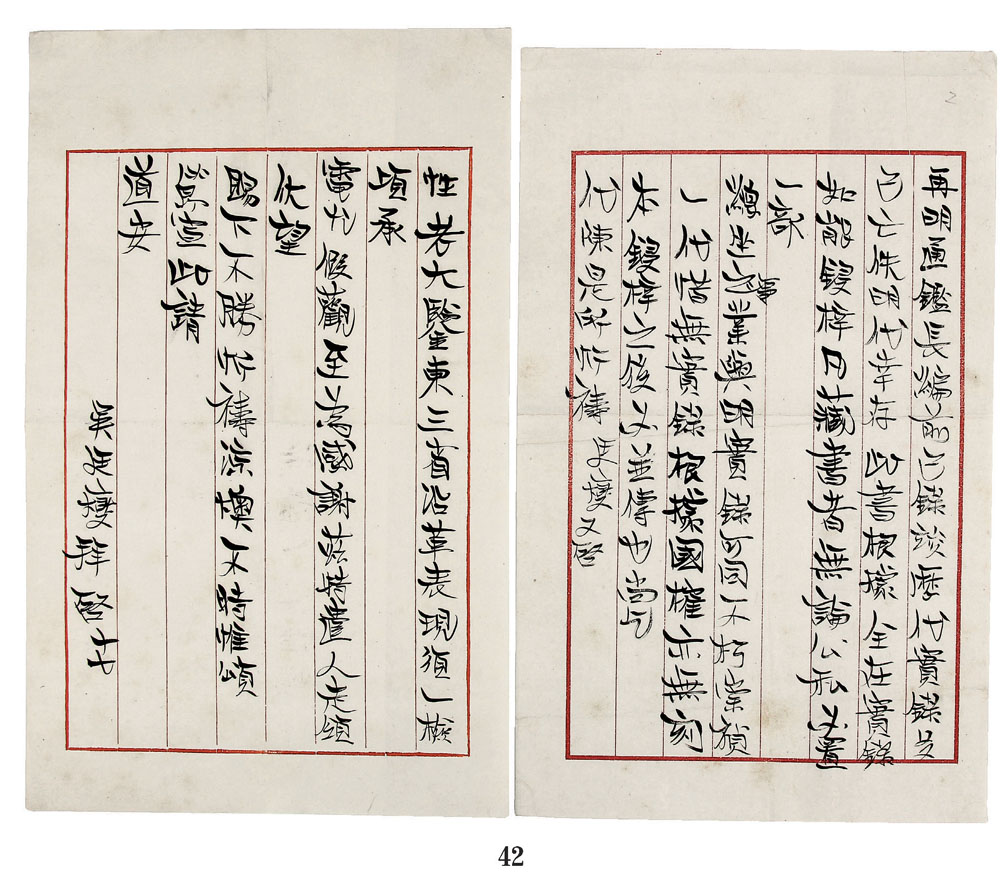 性老大鑒東三省沿革表現須一檢
頃承
電允假觀至為感謝茲特遣人走領
伏望
賜下不勝忻禱涼燠不時惟頌
箸宣此請
道安
吳廷燮拜啓 十七
2
再明通鑑長編前已錄談歷代實錄
已亡佚明代幸存此書根據全在實錄
如能鋟梓凡藏書者無論公私必置
一部
總坐之事業與明實錄可同不朽崇禎
一代惜無實錄根據國榷亦無刻
本鋟梓之後必並傳也尚乞
代陳是所忻禱 廷燮又啓
42